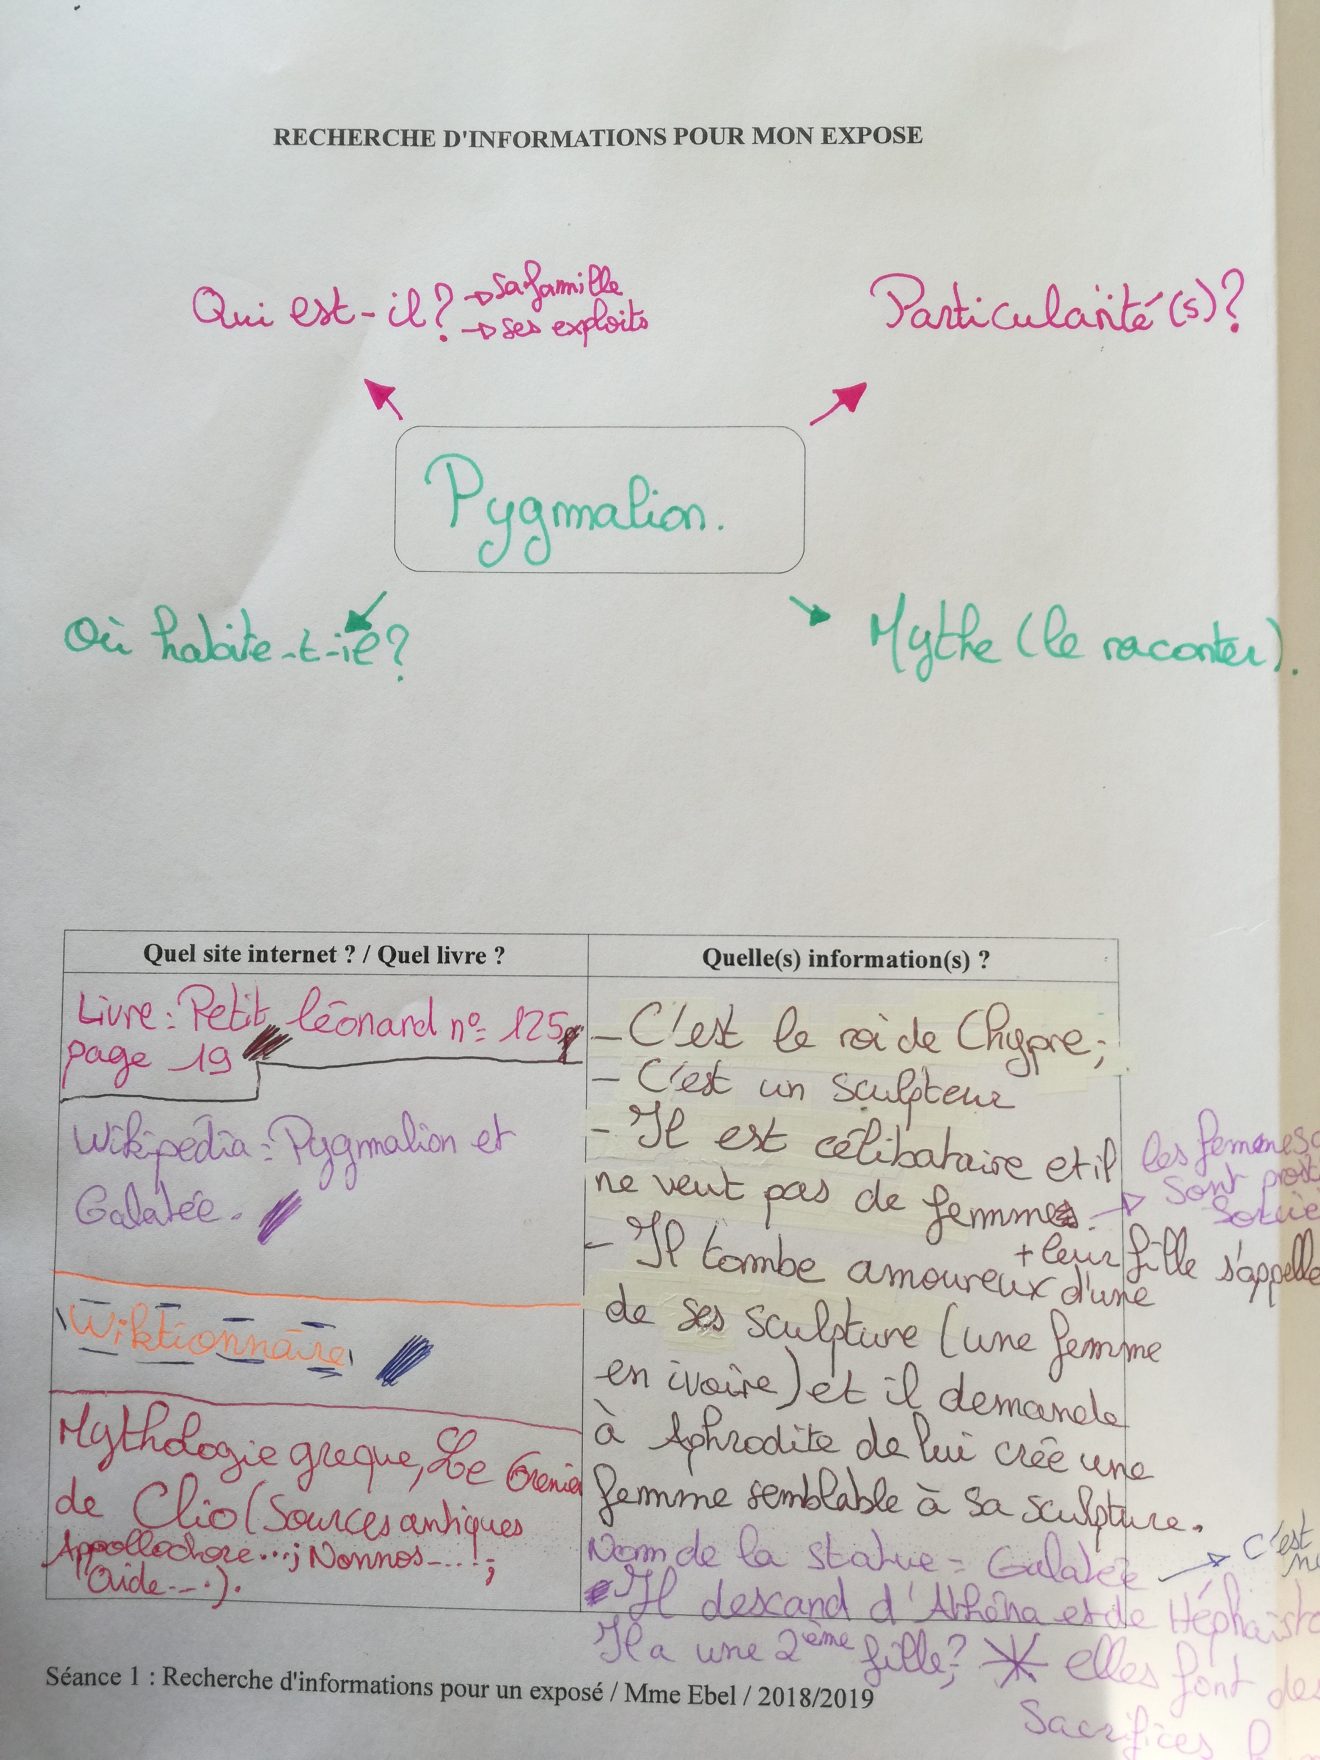 RECHERCHE D'INFORMATIONS POUR MON EXPOSE
Qui est-il? → sa famille
→ ses exploits
Particularité(s)?
Pygmalion.
Où habite-t-il?
Mythe (le raconter).
Quel site internet ? / Quel livre ?
Livre : Petit léonard n° 125
page 19
Wikipédia : Pygmalion et
Galatée.
Wiktionnaire
Mythologie grecque, Le Grenier
de Clio (Sources antiques
Appollodore...; Nonnos....;
Ovide...).
Quelle(s) information(s) ?
- C'est le roi de Chypre;
- C'est un sculpteur
- Il est célibataire et il
ne veut pas de femme. →
les femmes
sont
+ leur fille s'appelle
- Il tombe amoureux d'une
de ses sculpture (une femme
en ivoire) et il demande
à Aphrodite de lui crée une
femme semblable à sa sculpture.
Nom de la statue = Galatée → c'est
Il descand d'Athéna et de
Il a une 2ème fille? elles font des
Sacrifices
Séance 1 : Recherche d'informations pour un exposé / Mme Ebel / 2018/2019